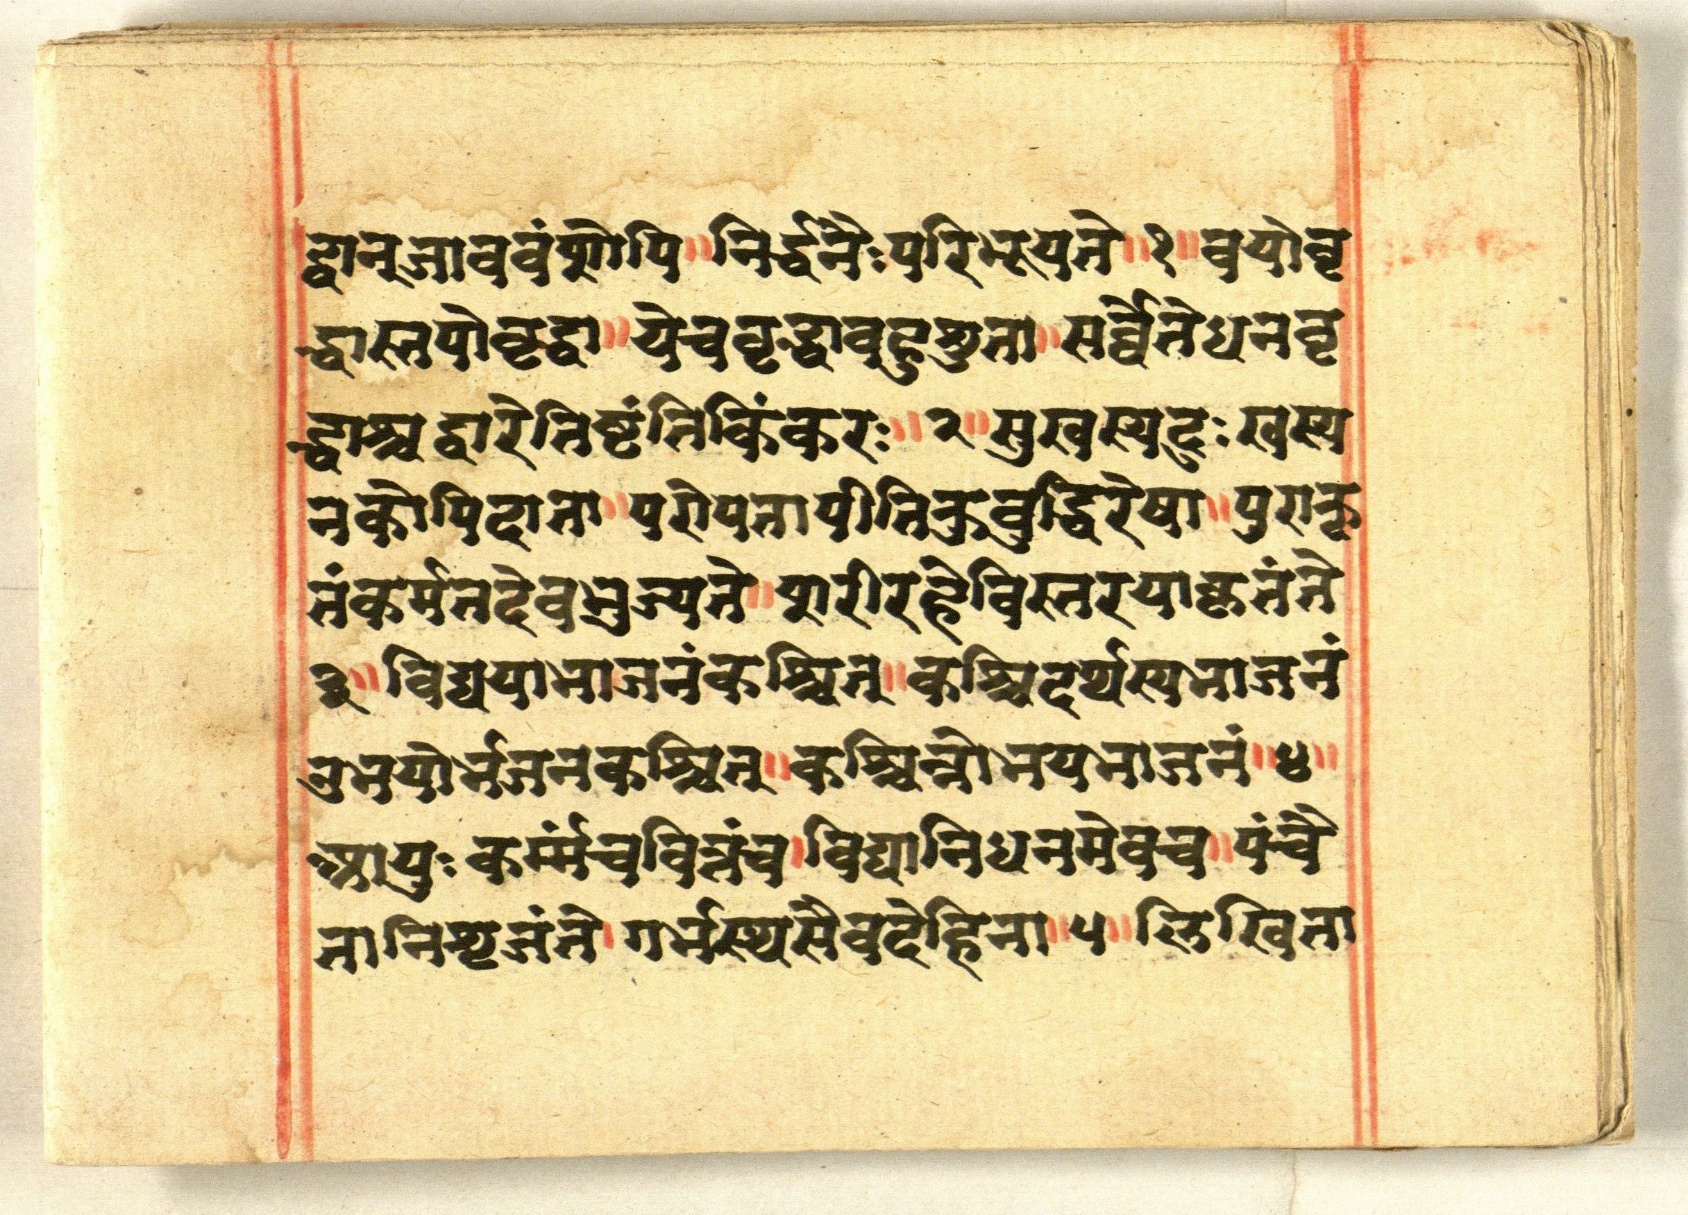 द्वानुजाववंशोपि॥निर्द्धनैःपरिभूयते॥१॥वयोवृ
द्धास्तपोवृद्धा॥येचवृद्धावहुश्रुता॥सर्व्वेतेधनवृ
द्धाश्चद्वारेतिष्टंतिकिंकरः॥२॥सुखस्यदुःखस्य
नकोपिदाता॥परोपतापीतिकुवुद्धिरेषा॥पुराकृ
तंकर्मतदेवभुज्यते॥शरीरहेविस्तरयात्कृतंते
३॥विद्ययाभाजनंकश्चित्॥कश्चिदर्थस्यभाजनं
उभयोर्भजनकश्चित्॥कश्चिन्नोभयभाजनं॥४॥
आयुःकर्म्मंचवित्तंच।विद्यानिधनमेवच॥पंचै
तानिशृजंते।गर्भस्थसैवदेहिना॥५॥लिखिता